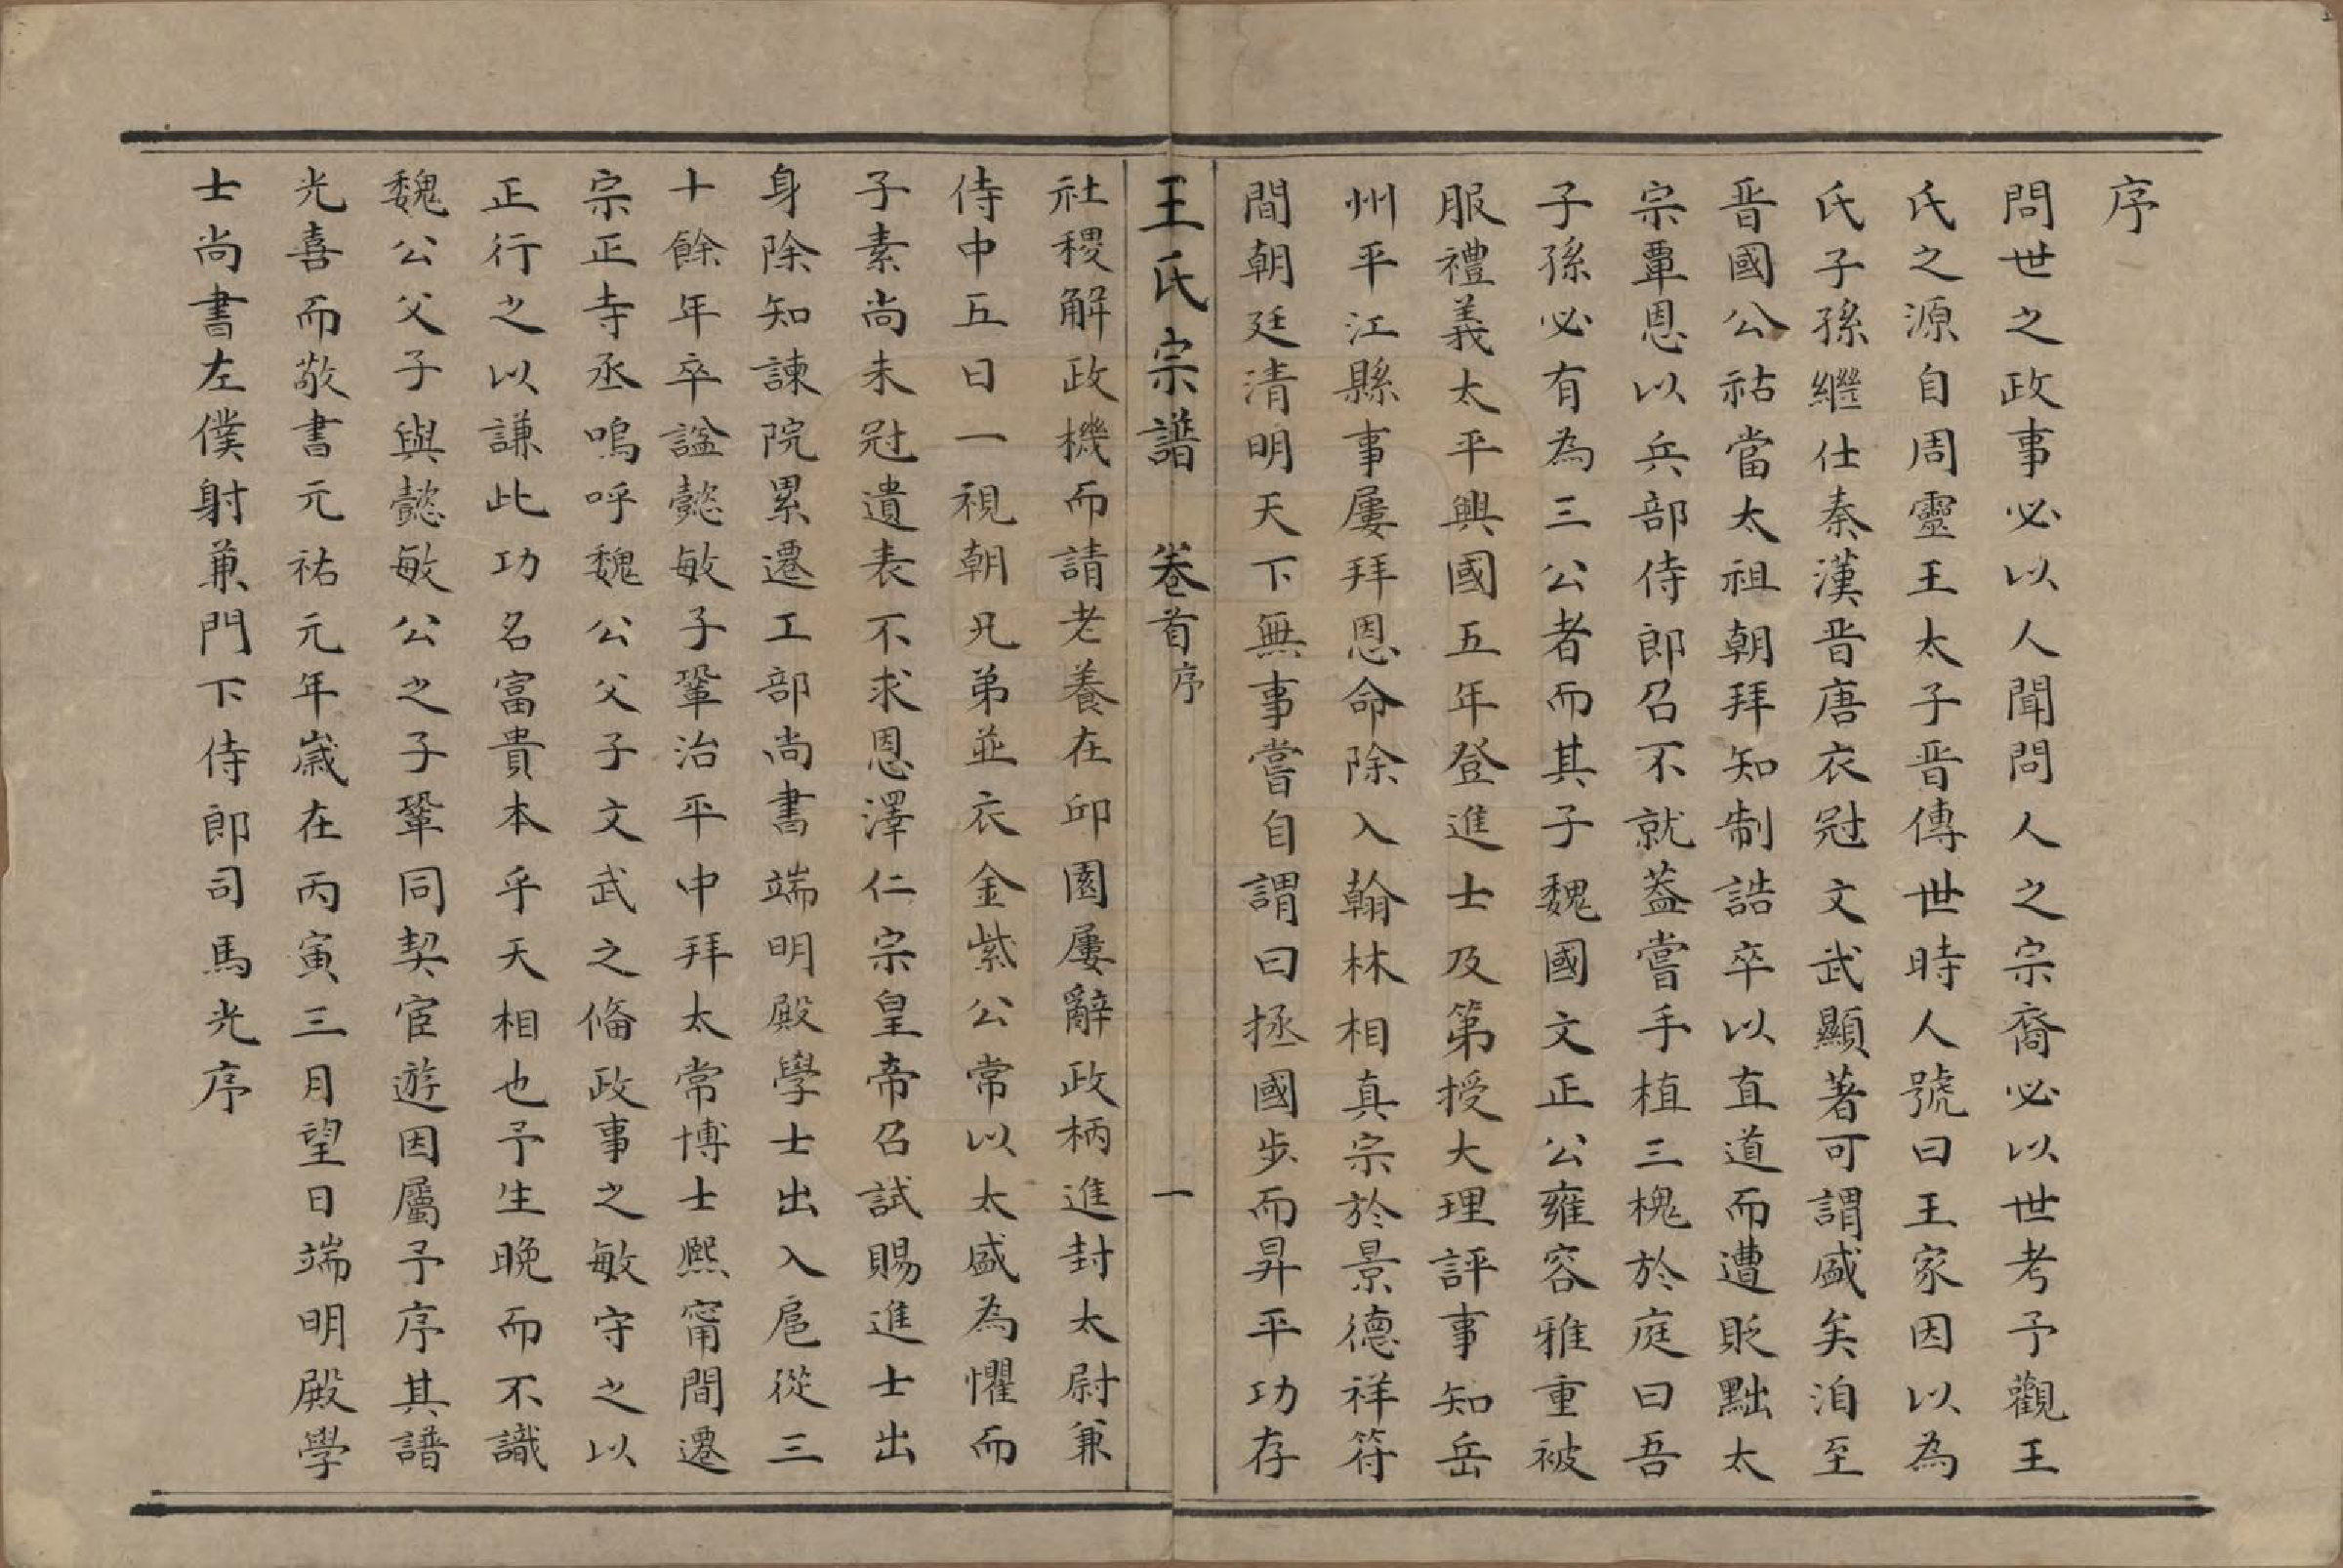 序
問世之政事必以人聞問人之宗裔必以世考予觀王
氏之源自周靈王太子晋傳世時人號曰王家因以為
氏子孫繼仕秦漢晋唐衣冠文武顯著可謂盛矣洎至
晋國公祜當太祖朝拜知制誥卒以直道而遭貶黜太
宗覃恩以兵部侍郎召不就葢嘗手植三槐於庭曰吾
子孫必有為三公者而其子魏國文正公雍容雅重被
服禮義太平興國五年登進士及第授大理評事知岳
州平江縣事屢拜恩命除入翰林相真宗於景德祥符
間朝廷清明天下無事嘗自謂曰拯國步而昇平功存
王氏宗譜 卷首 序 一
社稷解政機而請老養在邱園屢辭政柄進封太尉兼
侍中五日一視朝兄弟並衣金紫公常以太盛為懼而
子素尚未冠遺表不求恩澤仁宗皇帝召試賜進士出
身除知諫院累遷工部尚書端明殿學士出入扈從三
十餘年卒謚懿敏子鞏治平中拜太常博士熈甯間遷
宗正寺丞嗚呼魏公父子文武之俻政事之敏守之以
正行之以謙此功名富貴本乎天相也予生晚而不識
魏公父子與懿敏公之子鞏同契宦遊因屬予序其譜
光喜而敬書元祐元年嵗在丙寅三月望日端明殿學
士尚書左僕射兼門下侍郎司馬光序